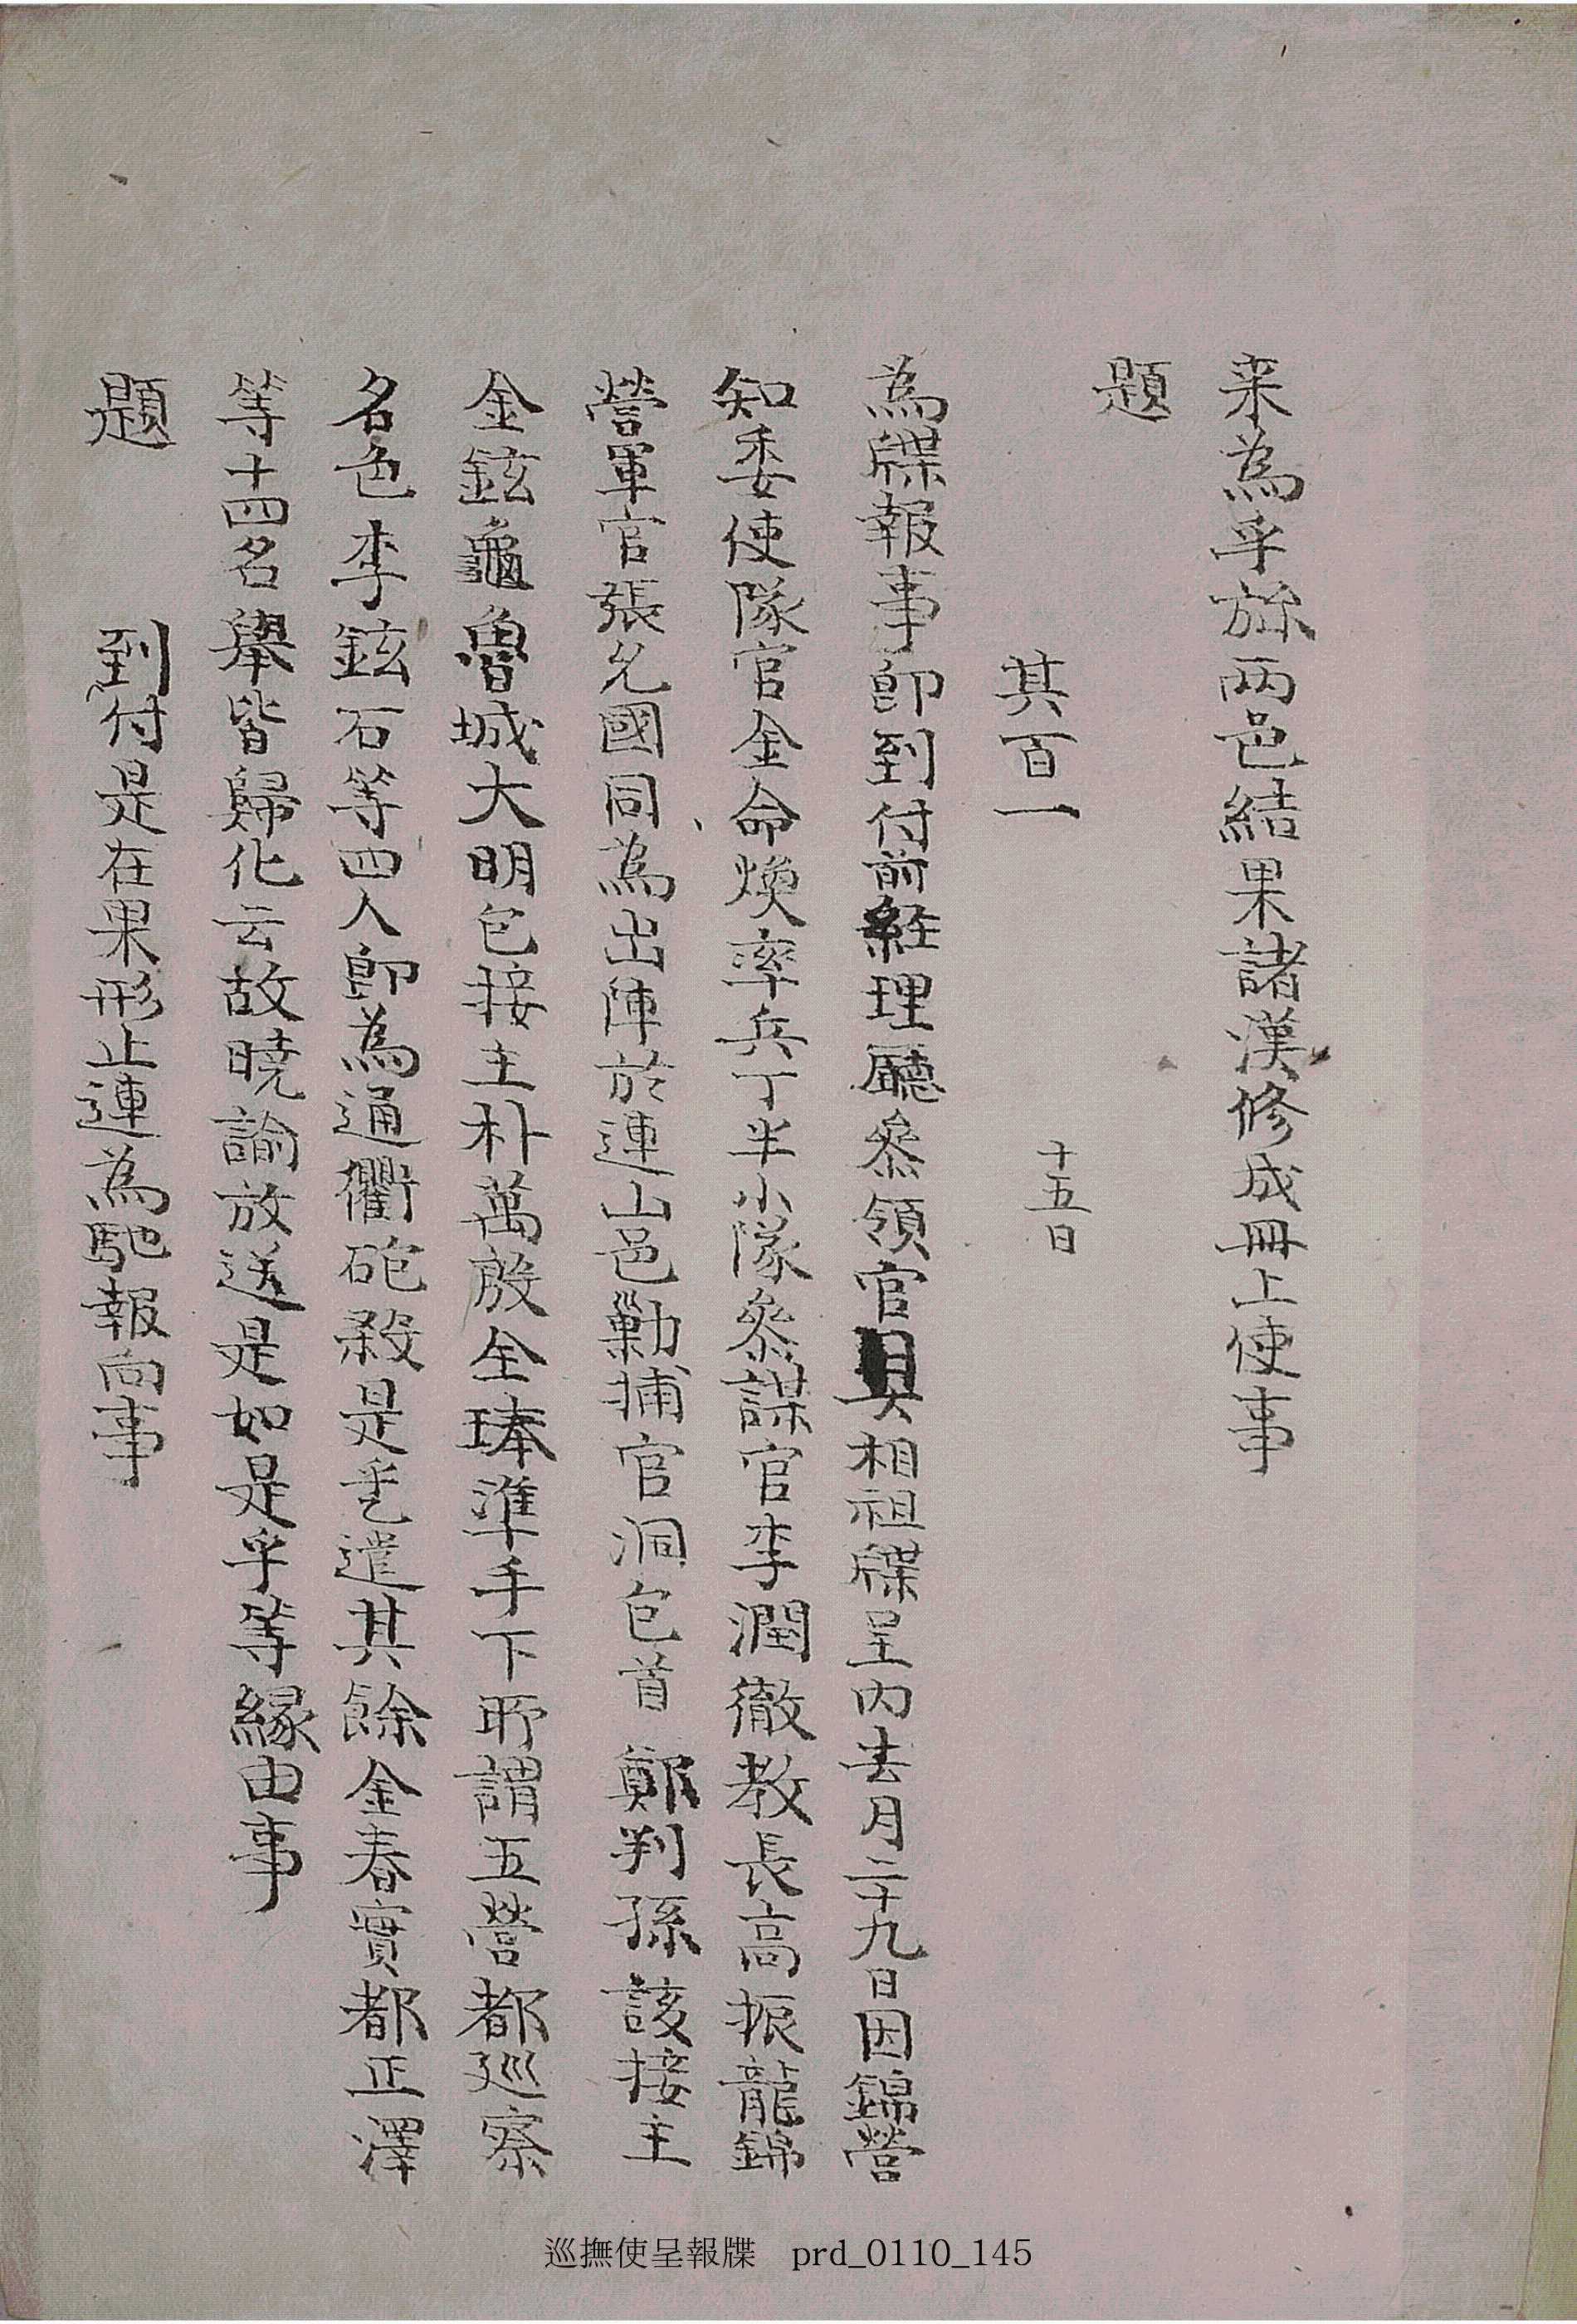 来為乎旀兩邑結果諸漢修成冊上使事
題
其百一　十五日
為牒報事卽到付前經理廳叅領官具相祖牒呈內去月二十九日因錦營
知委使隊官金命煥率兵丁半小隊叅謀官李潤徹敎長高振龍錦
營軍官張允國同為出陣於連山邑勦捕官洞包首鄭判孫該接主
金鉉龜魯城大明包接主朴萬殷全琫準手下所謂五營都巡察
名色李鉉石等四人卽為通衢砲殺是乎遣其餘金春實都正澤
等十四名擧皆歸化云故曉諭放送是如是乎等緣由事
題　到付是在果形止連為馳報向事
巡撫使呈報牒 prd_0110_145